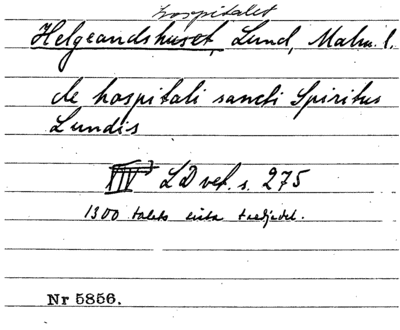 hospitalet
Helgeandshuset, Lund, Malm. l.
de hospitali sancti Spiritus
Lundis
XIV 3 LD vet. s. 275
1300 talets sista tredjedel.
Nr 5856.